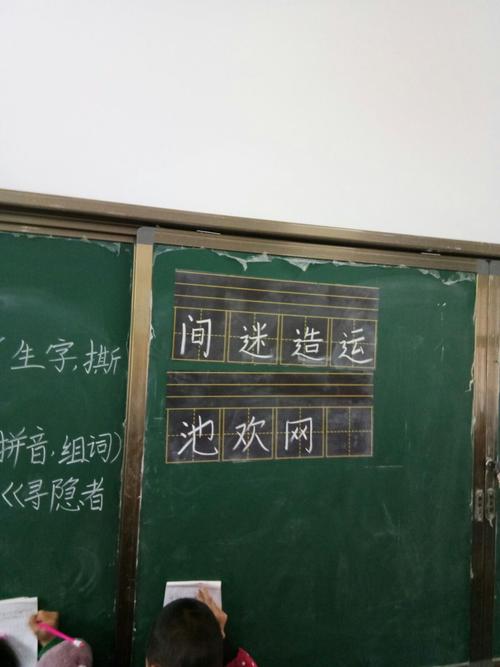 生字,撕
拼音.组词)
《寻隐者
间迷造运
池欢网